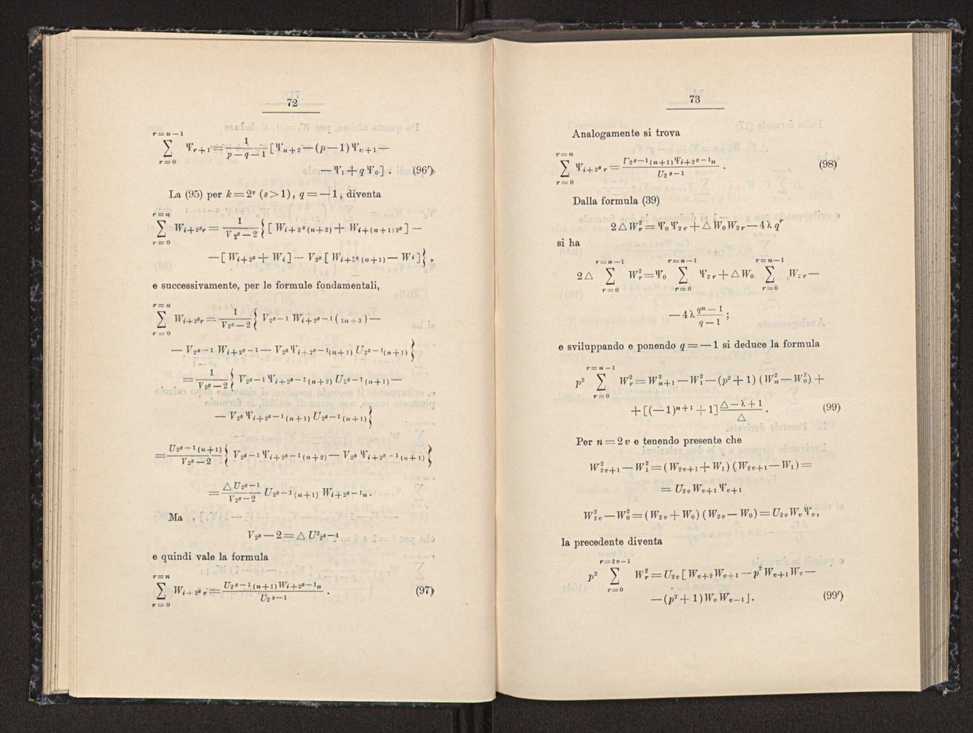 72
\sum_{r=0}^{r=n-1} Ψ_{r+1} = \frac{1}{p-q-1} [Ψ_{n+2} — (p—1) Ψ_{n+1} —
— Ψ_1 + q Ψ_0] . (96')
La (95) per k = 2^s (s > 1), q = —1, diventa
\sum_{r=0}^{r=n} W_{i+2^s r} = \frac{1}{V_{2^s}-2} \{ [ W_{i+2^s(n+2)} + W_{i+(n+1)2^s} ] —
— [ W_{i+2^s} + W_i ] — V_{2^s} [ W_{i+2^s(n+1)} — W_i ] \} ,
e successivamente, per le formule fondamentali,
\sum_{r=0}^{r=n} W_{i+2^s r} = \frac{1}{V_{2^s}-2} \{ V_{2^{s-1}} W_{i+2^{s-1}(2n+3)} —
— V_{2^{s-1}} W_{i+2^{s-1}} — V_{2^s} Ψ_{i+2^{s-1}(n+1)} U_{2^{s-1}(n+1)} \}
= \frac{1}{V_{2^s}-2} \{ V_{2^{s-1}} Ψ_{i+2^{s-1}(n+2)} U_{2^{s-1}(n+1)} —
— V_{2^s} Ψ_{i+2^{s-1}(n+1)} U_{2^{s-1}(n+1)} \}
= \frac{U_{2^{s-1}(n+1)}}{V_{2^s}-2} \{ V_{2^{s-1}} Ψ_{i+2^{s-1}(n+2)} — V_{2^s} Ψ_{i+2^{s-1}(n+1)} \}
= \frac{△ U_{2^{s-1}}}{V_{2^s}-2} U_{2^{s-1}(n+1)} W_{i+2^{s-1}n} .
Ma
V_{2^s} — 2 = △ U^2_{2^{s-1}}
e quindi vale la formula
\sum_{r=0}^{r=n} W_{i+2^s r} = \frac{U_{2^{s-1}(n+1)} W_{i+2^{s-1}n}}{U_{2^{s-1}}} . (97)
73
Analogamente si trova
\sum_{r=0}^{r=n} Ψ_{i+2^s r} = \frac{U_{2^{s-1}(n+1)} Ψ_{i+2^{s-1}n}}{U_{2^{s-1}}} . (98)
Dalla formula (39)
2 △ W_r^2 = Ψ_0 Ψ_{2r} + △ W_0 W_{2r} — 4 λ q^r
si ha
2 △ \sum_{r=0}^{r=n-1} W_r^2 = Ψ_0 \sum_{r=0}^{r=n-1} Ψ_{2r} + △ W_0 \sum_{r=0}^{r=n-1} W_{2r} —
— 4 λ \frac{q^n-1}{q-1} ;
e sviluppando e ponendo q = — 1 si deduce la formula
p^2 \sum_{r=0}^{r=n-1} W_r^2 = W_{n+1}^2 — W_1^2 — (p^2 + 1) (W_n^2 — W_0^2) +
+ [(—1)^{n+1} + 1] \frac{△ — λ + 1}{△} . (99)
Per n = 2 v e tenendo presente che
W_{2v+1}^2 — W_1^2 = (W_{2v+1} + W_1) (W_{2v+1} — W_1) =
= U_{2v} W_{v+1} Ψ_{v+1}
W_{2v}^2 — W_0^2 = (W_{2v} + W_0) (W_{2v} — W_0) = U_{2v} W_v Ψ_v,
la precedente diventa
p^2 \sum_{r=0}^{r=2v-1} W_r^2 = U_{2v} [ W_{v+2} W_{v+1} — p^2 W_{v+1} W_v —
— (p^2 + 1) W_v W_{v-1} ]. (99')